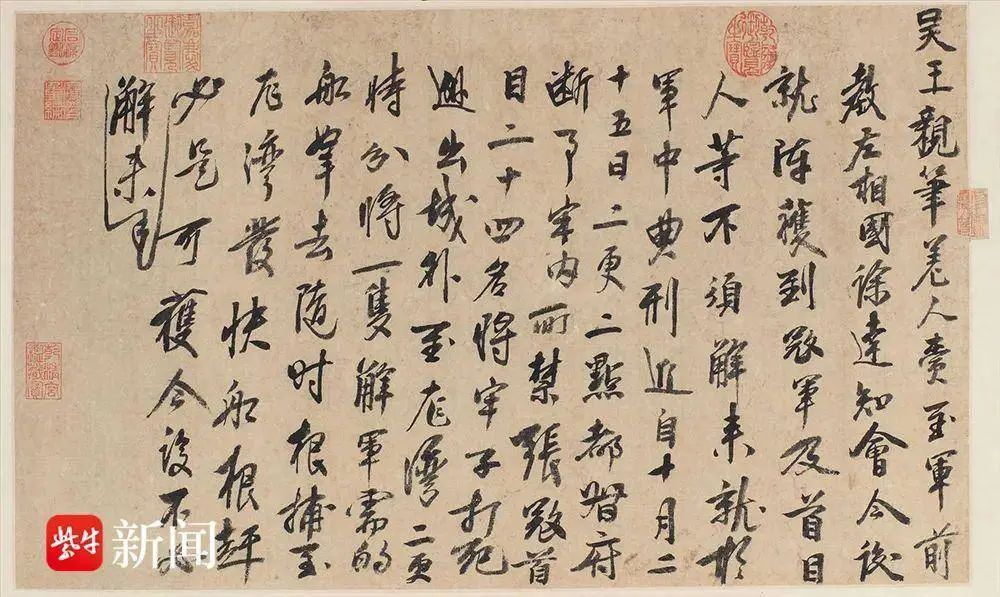 吴王親筆差人賫至軍前
教左相國徐達知會今後
就陣獲到寇軍及首目
人等不須解来就於
軍中典刑近自十月二
十五日二更二點都督府
断了牢内所禁張寇首
目二十四名將牢子打死
出城外至龙灣二更
時分將一隻解軍需的
船拿去隨时根捕至
龙灣發快船根赶
必是可獲今後不
解来
紫牛 新闻